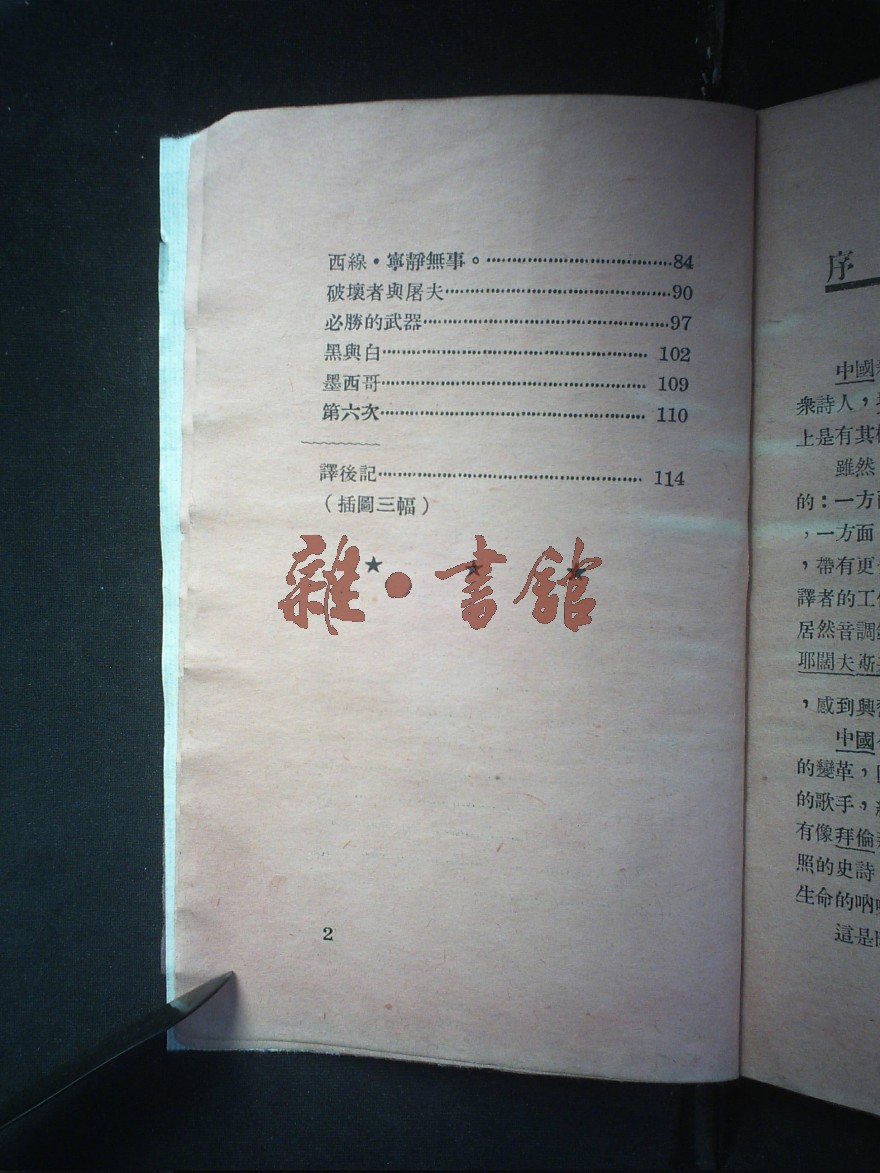 西線・寧靜無事。……………………………84
破壞者與屠夫……………………………90
必勝的武器……………………………97
黑與白……………………………102
墨西哥……………………………109
第六次……………………………110
譯後記……………………………114
（插圖三幅）
★ ★ ★
雜・書館
2
序
中國
衆詩人，
上是有其
雖然
的：一方
，一方面
，帶有更
譯者的工
居然音調
耶闊夫斯
，感到興
中國
的變革，
的歌手，
有像拜倫
照的史詩
生命的吶
這是